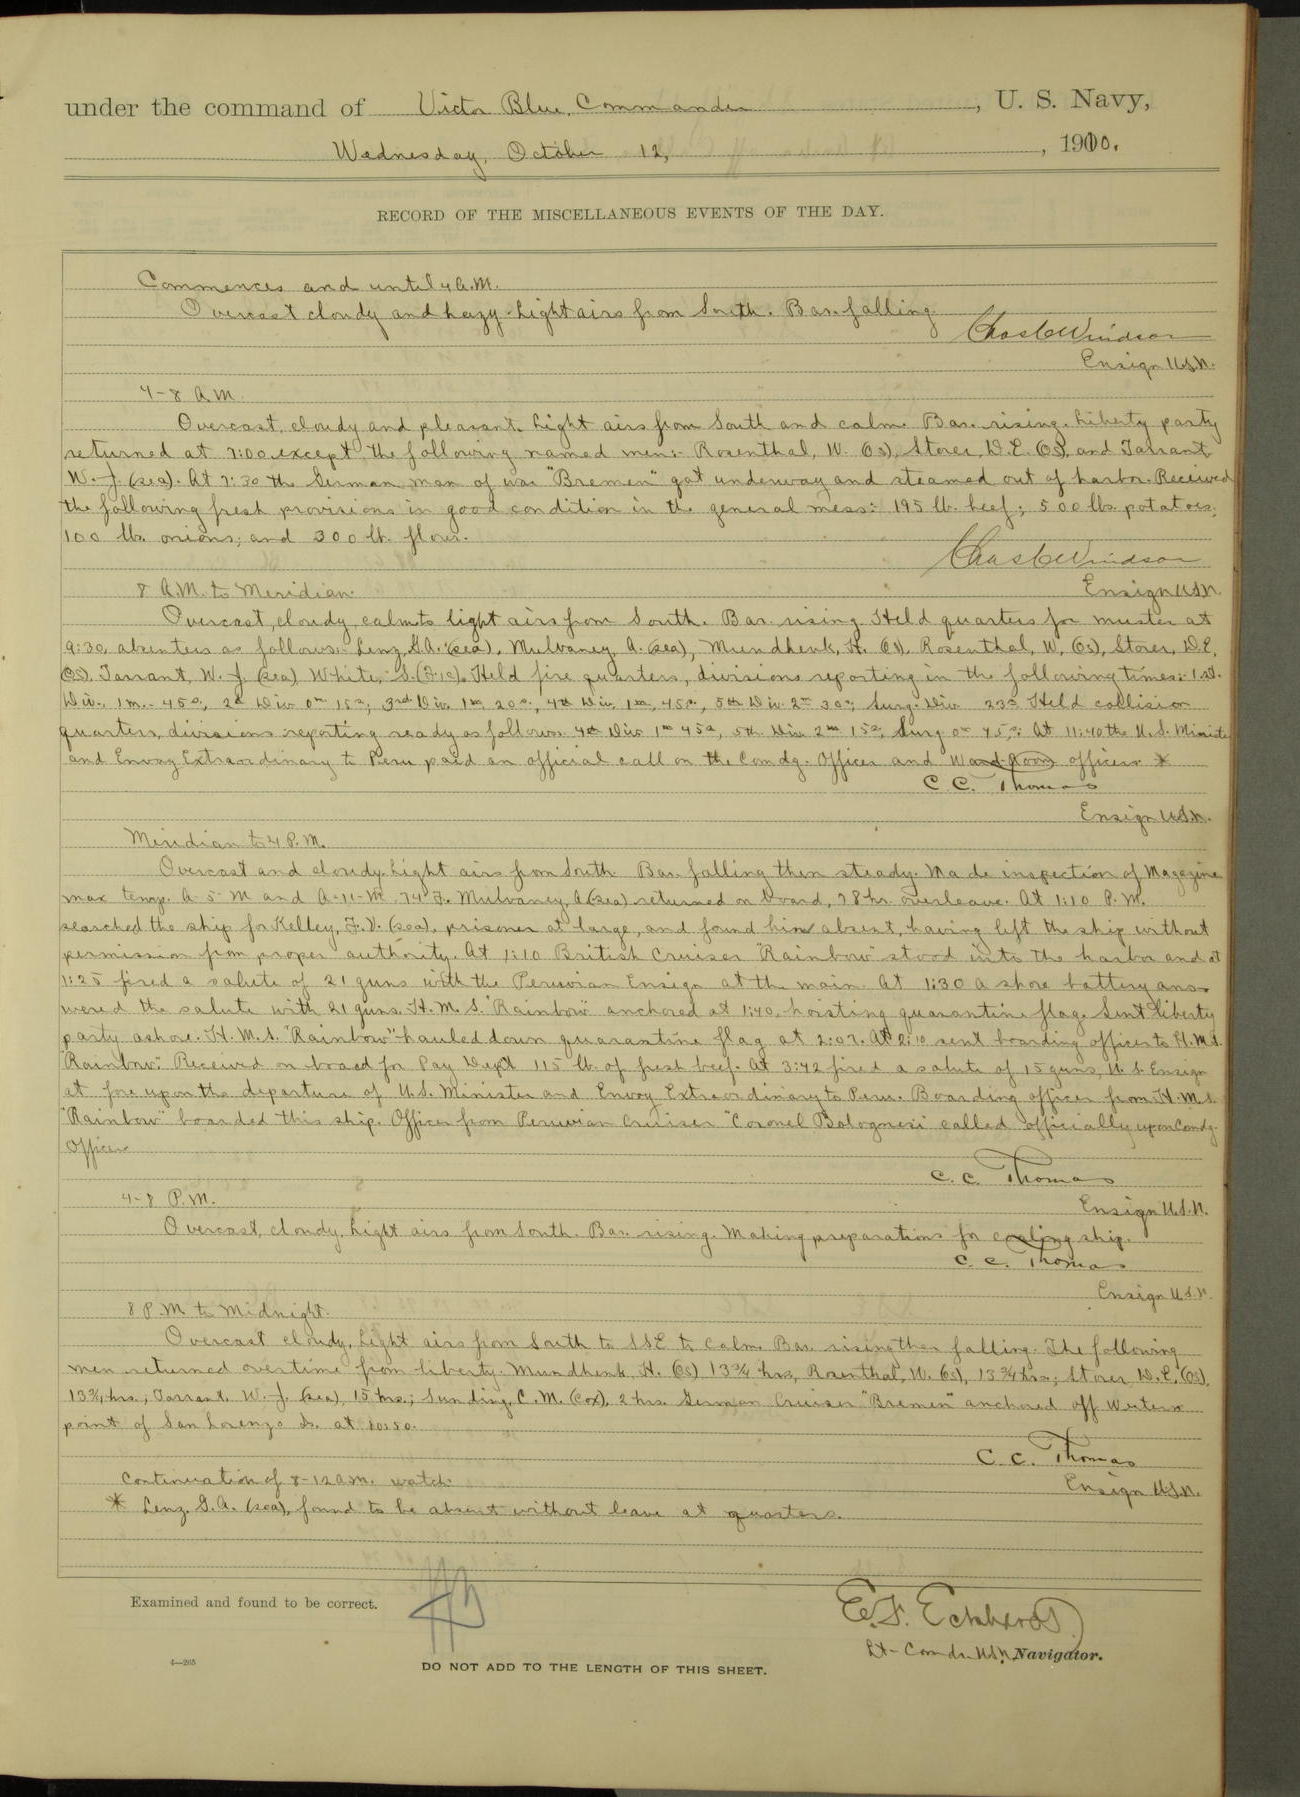 under the command of Victor Blue, Commander, U. S. Navy,
Wednesday, October 12, 1910.
RECORD OF THE MISCELLANEOUS EVENTS OF THE DAY.
Commences and until 4 A.M.
Overcast cloudy and hazy. Light airs from South. Bar. falling.
Chas C Windsor
Ensign U.S.N.
4-8 A.M.
Overcast, cloudy and pleasant. Light airs from South and calm. Bar. rising. Liberty party
returned at 7:00 except the following named men:- Rosenthal, W. (OS), Storer, D.E. (OS), and Tarrant,
W. J. (sea). At 7:30 the German man of war "Bremen" got underway and steamed out of harbor. Received
the following fresh provisions in good condition in the general mess:- 195 lb. beef; 500 lbs. potatoes;
100 lbs. onions; and 300 lb. flour.
Chas C Windsor
8 A.M. to Meridian. Ensign U.S.N.
Overcast, cloudy, calm to light airs from South. Bar. rising. Held quarters for muster at
9:30, absentees as follows:- Lenz, G.A. (sea), Mulvaney, A. (sea), Mundhenk, H. (OS), Rosenthal, W. (OS), Storer, D.E.
(OS), Tarrant, W. J. (sea), White, S. (F.1c). Held fire quarters, divisions reporting in the following times:- 1st.
Div., 1 m.- 45 s, 2d Div 0m 15s; 3rd Div. 1m 20s, 4th Div, 1m, 45s, 5th Div. 2m 30s; Surg. Div. 23s. Held collision
quarters, divisions reporting ready as follows: 4th Div 1m 45s, 5th Div 2m 15s, Surg 0m 45s; At 11:40 the U.S. Minister
and Envoy Extraordinary to Peru paid an official call on the Comdg. Officer and Ward Room officers. *
C. C. Thomas
Ensign U.S.N.
Meridian to 4 P.M.
Overcast and cloudy. Light airs from South. Bar. falling then steady. Made inspection of Magazine
max temp. A-5-M and A-11-M 74° F. Mulvaney, A (sea) returned on board, 78 hr. overleave. At 1:10 P.M.
searched the ship for Kelley, F.V. (sea), prisoner at large, and found him absent, having left the ship without
permission from proper authority. At 1:10 British Cruiser "Rainbow" stood into the harbor and at
1:25 fired a salute of 21 guns with the Peruvian Ensign at the main. At 1:30 a shore battery ans-
wered the salute with 21 guns. H.M.S. "Rainbow" anchored at 1:40, hoisting quarantine flag. Sent liberty
party ashore. H.M.S. "Rainbow" hauled down quarantine flag at 2:07. At 2:10 sent boarding officer to H.M.S.
"Rainbow". Received on board for Pay Dep't 115 lb. of fresh beef. At 3:42 fired a salute of 15 guns, U.S. Ensign
at fore upon the departure of U.S. Minister and Envoy Extraordinary to Peru. Boarding officer from H.M.S.
"Rainbow" boarded this ship. Officer from Peruvian Cruiser "Coronel Bolognesi" called officially upon Comdg.
Officer.
C. C. Thomas
4-8 P.M. Ensign U.S.N.
Overcast, cloudy, Light airs from South. Bar. rising. Making preparations for coaling ship.
C. C. Thomas
Ensign U.S.N.
8 P.M. to Midnight.
Overcast cloudy, Light airs from South to SSE to calm. Bar. rising then falling. The following
men returned overtime from liberty. Mundhenk, H. (OS) 13 3/4 hrs, Rosenthal, W. (OS), 13 3/4 hrs; Storer, D.E. (OS),
13 3/4 hrs.; Tarrant, W. J. (sea), 15 hrs.; Sunding, C. M. (cox), 2 hrs. German Cruiser "Bremen" anchored off Western
point of San Lorenzo Is. at 10:50.
C. C. Thomas
Continuation of 8-12 a.m. watch. Ensign U.S.N.
* Lenz, G.A. (sea), found to be absent without leave at quarters.
Examined and found to be correct.
E. F. Eckhardt
Lt-Comdr. U.S.N, Navigator.
4—265
DO NOT ADD TO THE LENGTH OF THIS SHEET.